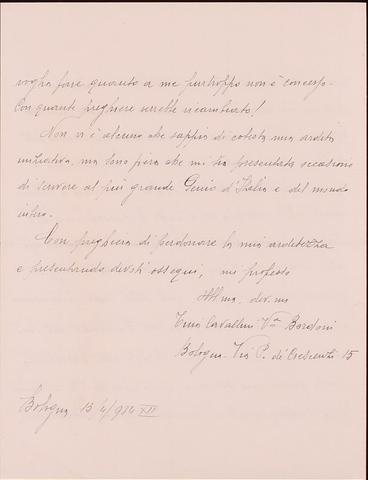 voglia fare quanto a me purtroppo non è concesso.
Con quante preghiere sarebbe ricambiato!
Non vi è alcuno che sappia di cotesta mia ardita
iniziativa, ma sono fiera che mi sia presentata occasione
di scrivere al più grande Genio d'Italia e del mondo
intero.
Con preghiera di perdonare la mia arditezza
e presentando devoti ossequi, mi professo
dev.ma
Cavallini Va Bordoni
Bologna - Via P. de' Crescenzi 15
Bologna, 13/4/934 XII